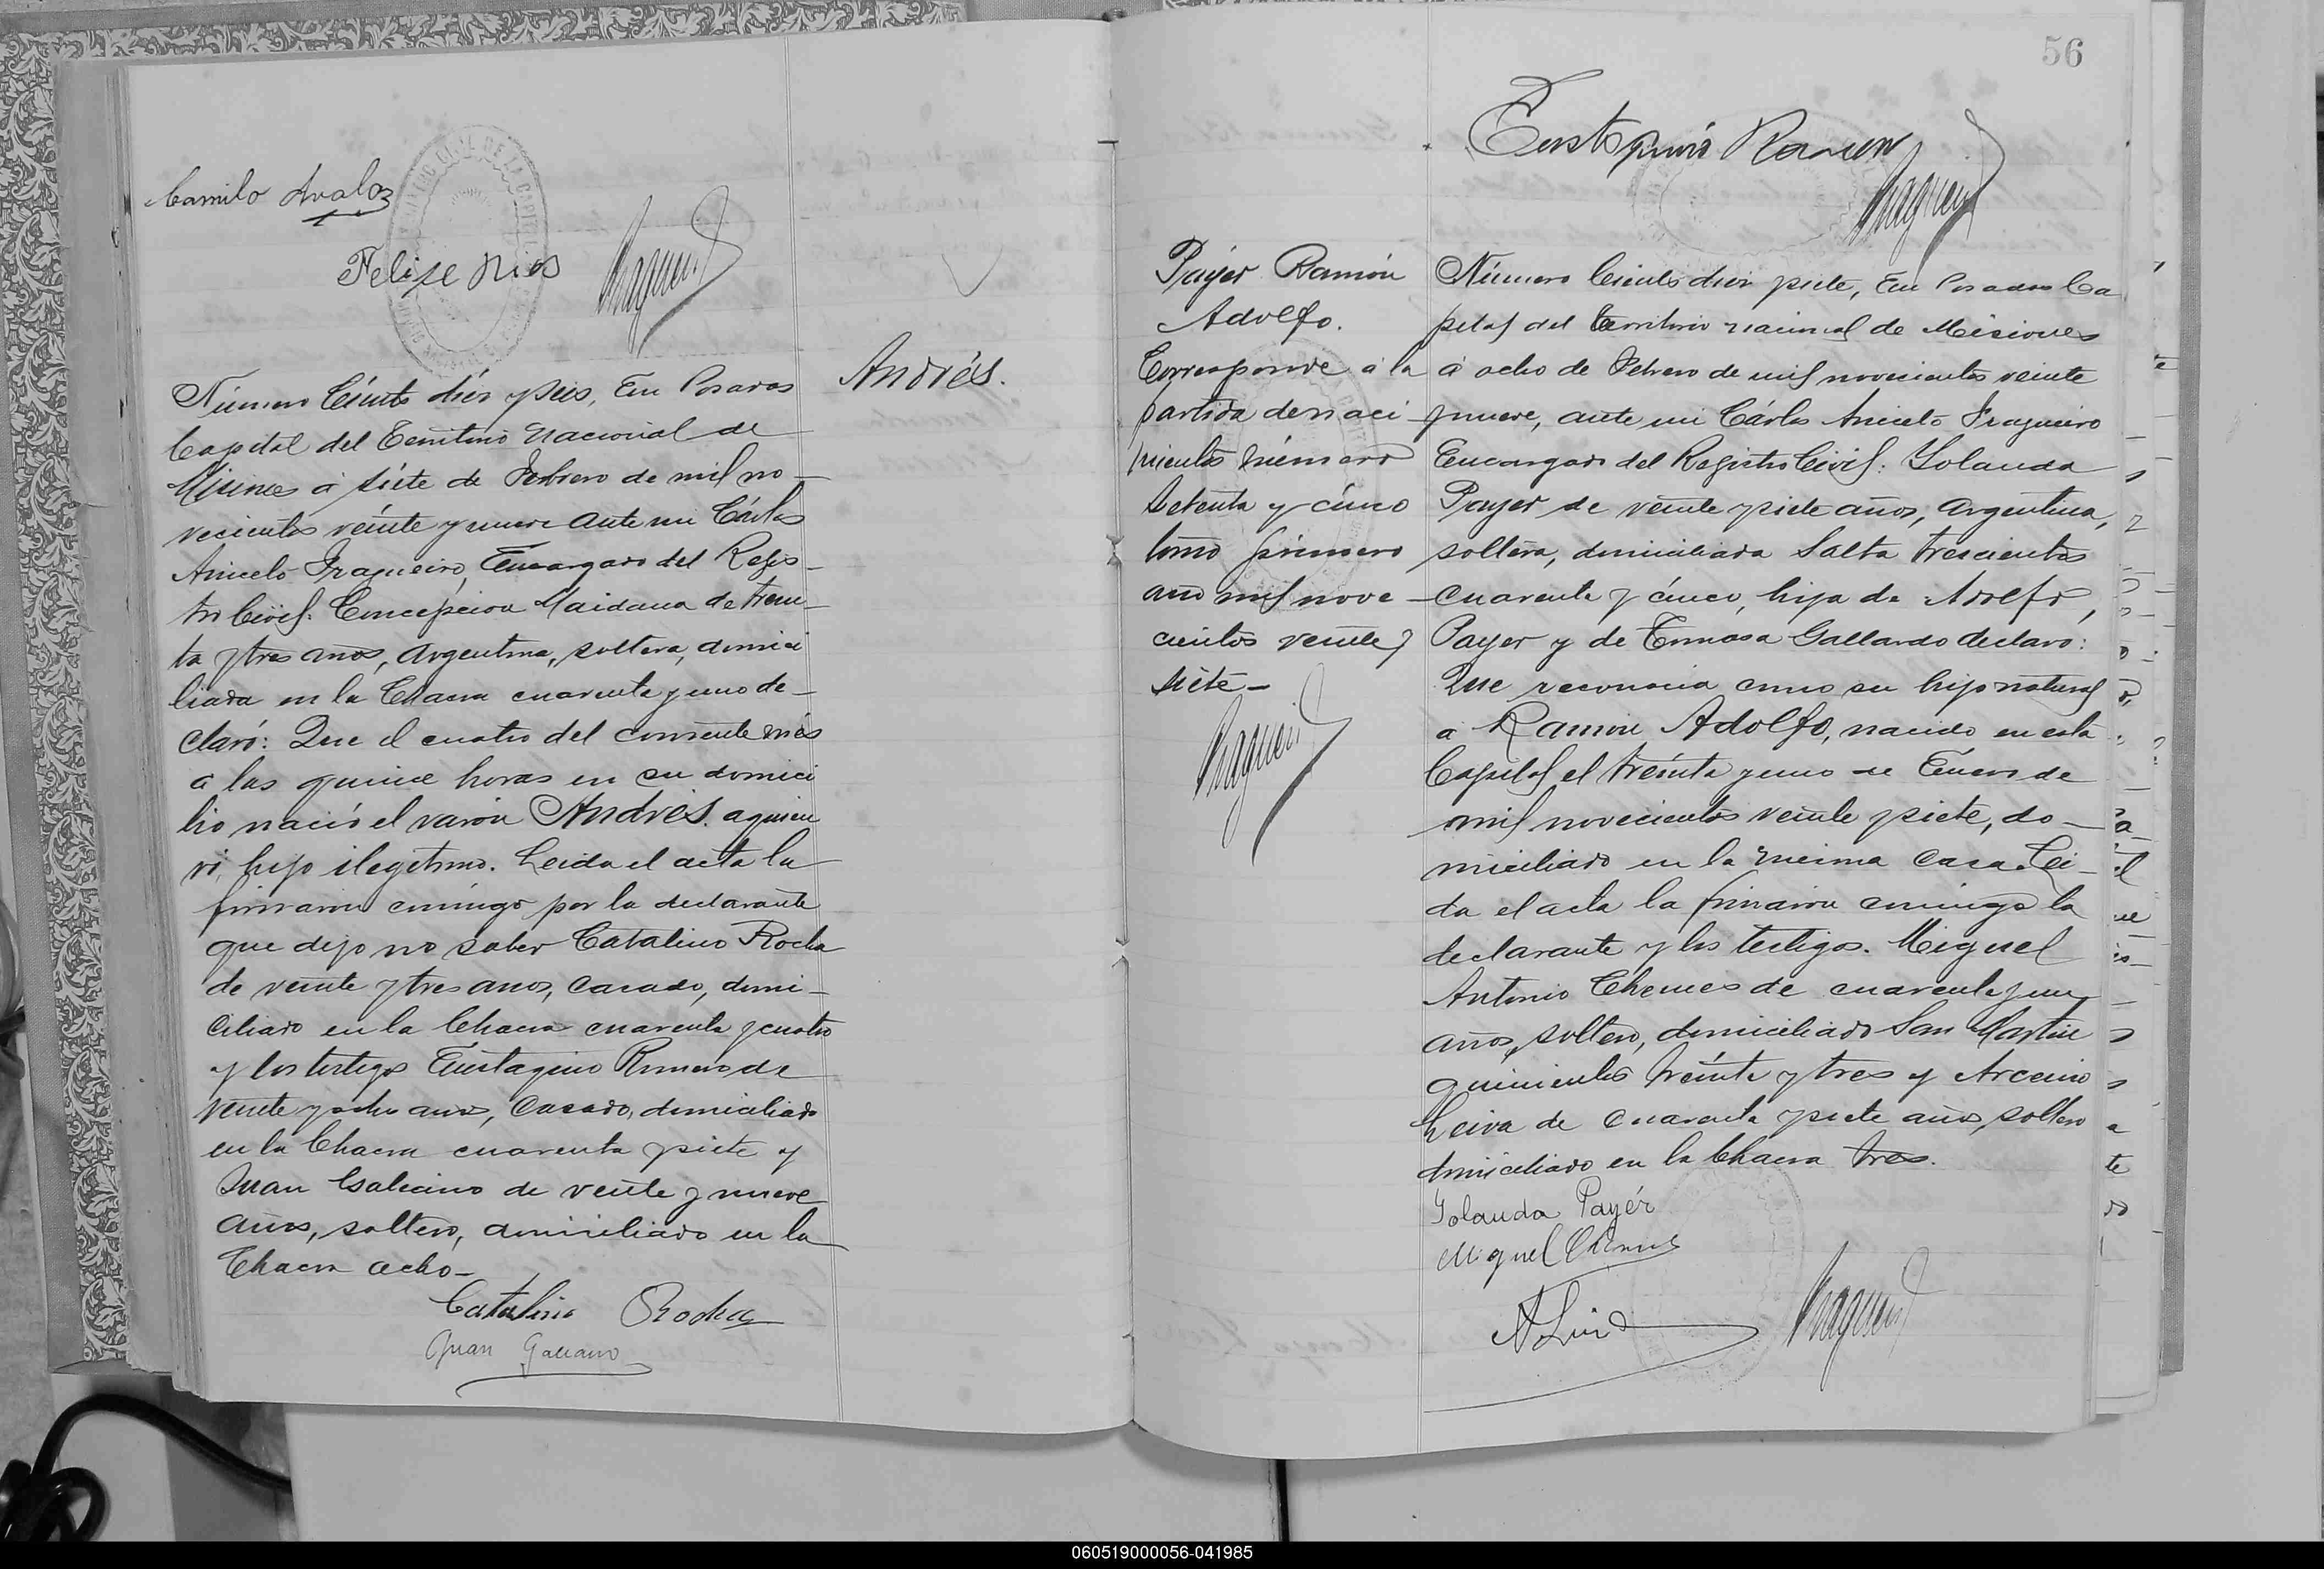 Camilo Avalos
Felipe Rios
Número Ciento diez y seis, En Posadas
Capital del Territorio Nacional de
Misiones á siete de Febrero de mil no-
vecientos veinte y nueve ante mi Cárlos
Aniceto Fragueiro, Encargado del Regis-
tro Civil: Concepcion Maidana de trein-
ta y tres años, argentina, soltera, domici
liada en la Chacra cuarenta y uno de-
claró: Que el cuatro del corriente mes
a las quince horas en su domici
lio nació el varón Andrés. a quien
vi, hijo ilegitimo. Leida el acta la
firmaron conmigo por la declarante
que dijo no saber Catalino Rocha
de veinte y tres años, casado, domi-
ciliado en la Chacra cuarenta y cuatro
y los testigos Eustaquio Romero de
veinte y ocho años, Casado, domiciliado
en la Chacra cuarenta y siete y
Juan Galeano de veinte y nueve
años, soltero, domiciliado en la
Chacra ocho-
Catalino Rocha
Juan Galeano
Andrés.
56
Payer Ramón
Adolfo.
Corresponde a la
partida de naci-
miento número
Setenta y cinco
tomo primero
año mil nove-
cientos veinte y
siete-
Número Ciento diez y siete, En Posadas Ca
pital del Territorio nacional de Misiones
á ocho de Febrero de mil novecientos veinte
y nueve, ante mi Cárlos Aniceto Fragueiro
Encargado del Registro Civil: Yolanda
Payer de veinte y siete años, argentina,
soltera, domiciliada Salta trescientos
cuarenta y cinco, hija de Adolfo,
Payer y de Tomasa Gallardo declaró:
Que reconocia como su hijo natural
a Ramón Adolfo, nacido en esta
Capital el treinta y uno de Enero de
mil novecientos veinte y siete, do-
miciliado en la misma casa. Lei-
da el acta la firmaron conmigo la
declarante y los testigos. Miguel
Antonio Chemes de cuarenta y un
años, soltero, domiciliado San Martin
quinientos treinta y tres y Arcenio
Leiva de cuarenta y siete años, soltero
domiciliado en la Chacra tres.
Yolanda Payér
Miguel Chemes
060519000056-041985